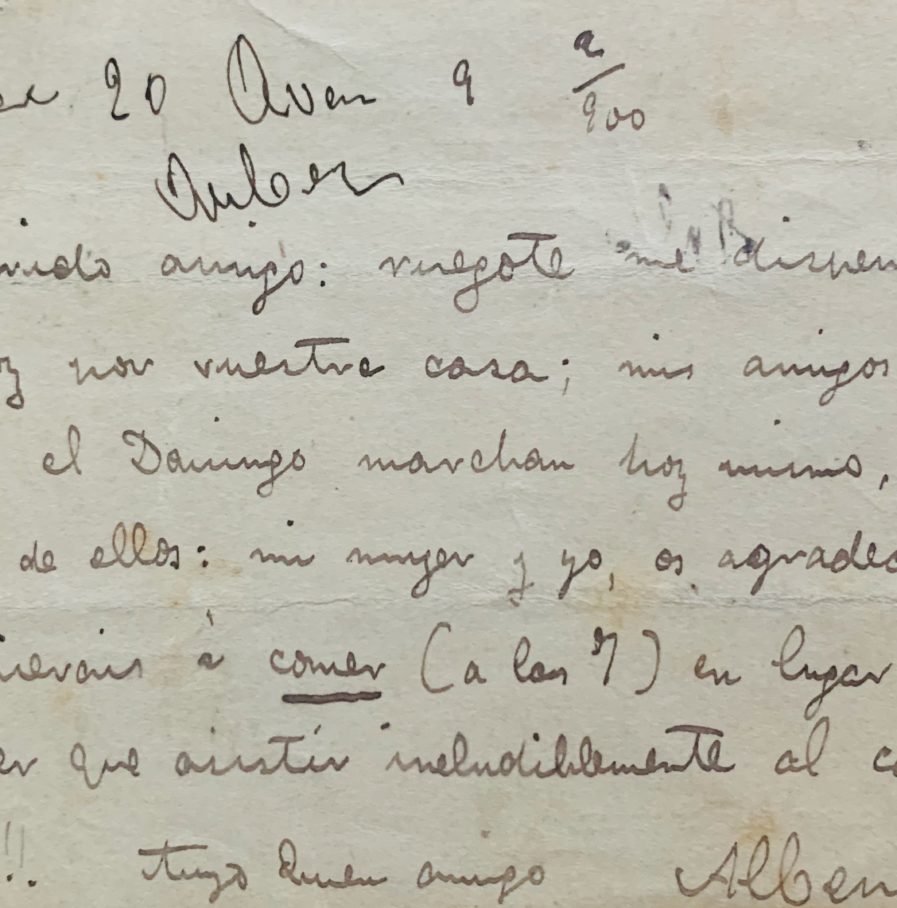 20 9 2/900
Auber
rido amigo: ruegote me dispen
oy por vuestra casa; mis amigos
el Domingo marchan hoy mismo,
de ellos: mi muger y yo, os agradec
ierais à comer (a las 7) en lugar
er que asistir ineludiblemente al c
!!. tuyo buen amigo Alben